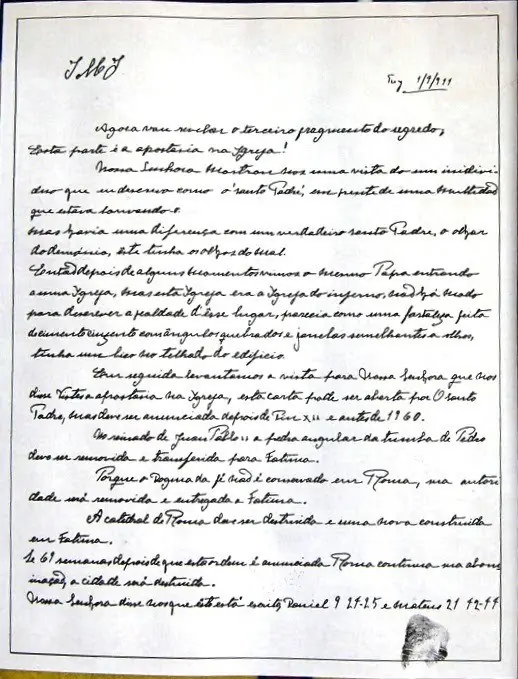 JMJ
Tuy 1/9/944
Agora vou revelar o terceiro fragmento do segredo;
Esta parte é a apostasia na Igreja!
Nossa Senhora mostrou nos uma vista do um individ
duo que eu descrevo como o 'santo Padre', em frente de uma multidão
que estava louvando-o.
Mas havia uma diferença com um verdadeiro santo Padre, o olhar
do demónio, êste tinha os olhos do mal.
Então depois de alguns momentos vimos o mesmo Papa entrando
a uma Igreja, mas esta Igreja era a Igreja do inferno, não há modo
para descrever a fealdade d'êsse lugar, parecia como uma fortaleza feita
de cimento cinzento com ângulos quebrados e janelas semelhantes a olhos,
tinha um bico no telhado do edifício.
Em seguida levantamos a vista para Nossa Senhora que nos
disse Vistes a apostasia na Igreja, esta carta pode ser aberta por O santo
Padre, mas deve ser anunciada depois de Pio XII e antes de 1960.
No reinado de Juan Pablo II a pedra angular da tumba de Pedro
deve ser removida e transferida para Fatima.
Porque o Dogma da fé não é conservado em Roma, sua autori
dade será removida e entregada a Fatima.
A catedral de Roma deve ser destruida e uma nova construida
em Fatima.
Se 69 semanas depois de que esta ordem é anunciada Roma continua sua abom
inação, a cidade será destruida.
Nossa Senhora disse nos que êste está escrito, Daniel 9 24-25 e Mateus 21 42-44